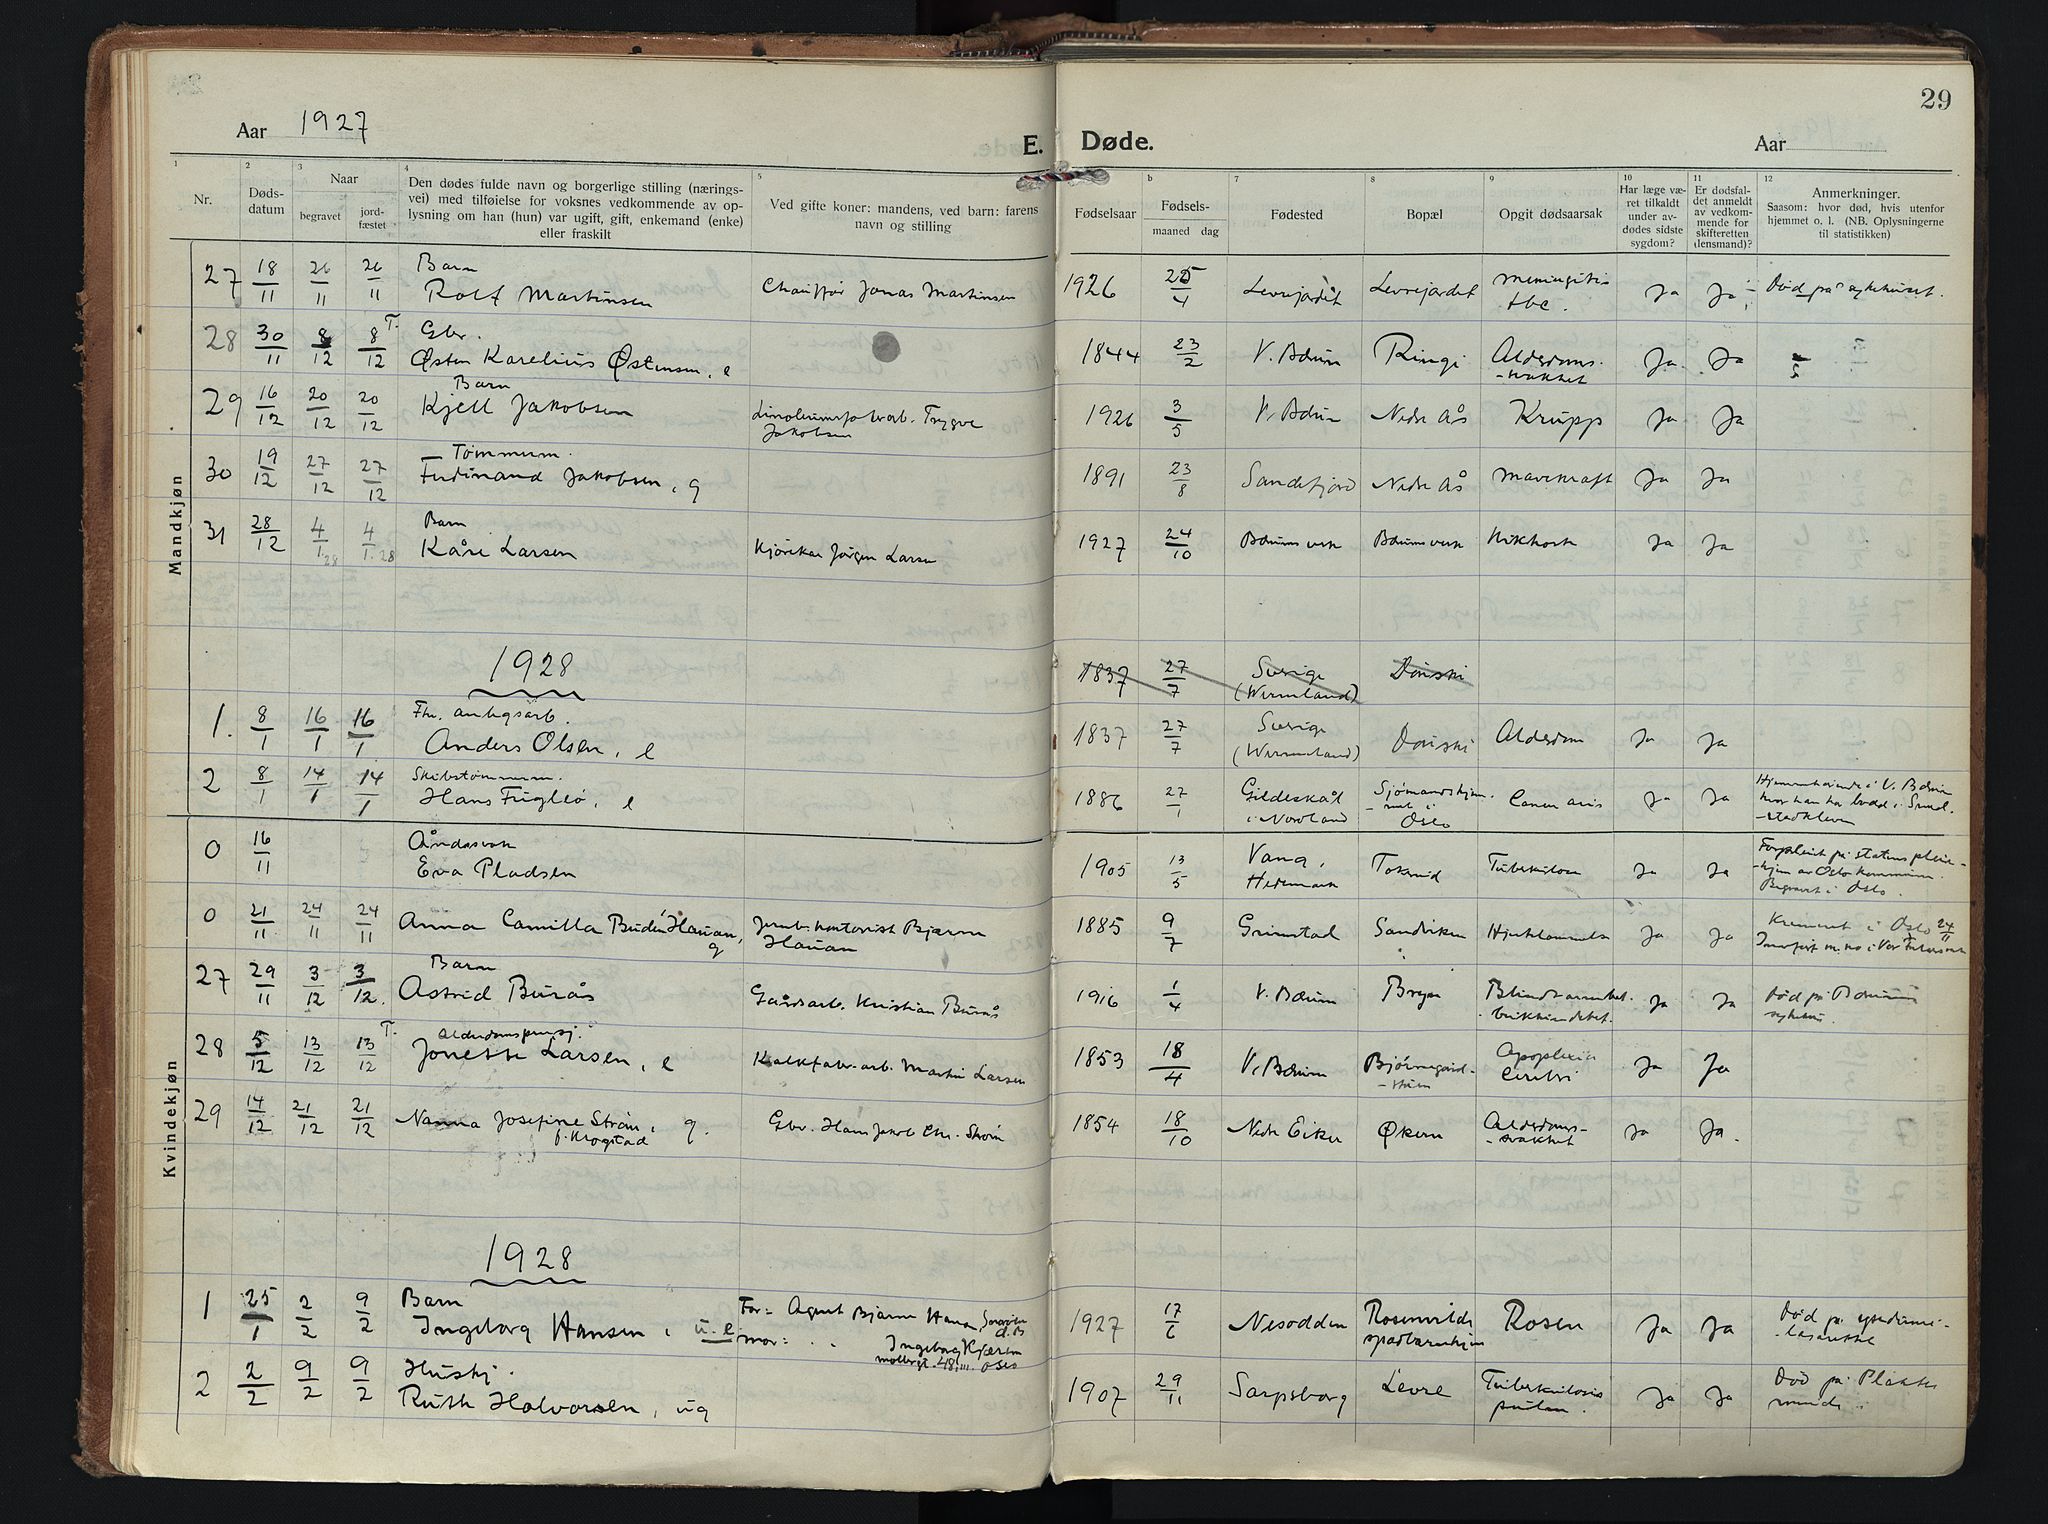 29
Aar 1927
E. Døde.
Aar
1 2 3 4 5 b 7 8 9 10 11 12
Nr.
Døds-
datum
Naar
begravet
jord-
fæstet
Den dødes fulde navn og borgerlige stilling (nærings-
vei) med tilføielse for voksnes vedkommende av op-
lysning om han (hun) var ugift, gift, enkemand (enke)
eller fraskilt
Ved gifte koner: mandens, ved barn: farens
navn og stilling
Fødselsaar
Fødsels-
maaned dag
Fødested
Bopæl
Opgit dødsaarsak
Har læge væ-
ret tilkaldt
under av-
dødes sidste
sygdom?
Er dødsfal-
det anmeldt
av vedkom-
mende for
skifteretten
(lensmand)?
Anmerkninger.
Saasom: hvor død, hvis utenfor
hjemmet o. l. (NB. Oplysningerne
til statistikken)
Mandkjøn
27 18/11 26/11 26/11 Barn
Rolf Martinsen Chauffør Jonas Martinsen 1926 25/4 Levrejordet Levrejordet meningitis
tbc. Ja Ja Død på sykehuset.
28 30/11 8/12 8/12 T. Gbr.
Østen Karelius Østensen, e 1844 23/2 V. Bærum Ringi Alderdoms-
-svakhet Ja Ja
29 16/12 20/12 20/12 Barn
Kjell Jakobsen Linoleumsfabr.arb. Trygve
Jakobsen 1926 3/5 V. Bærum Nedre Ås Krupp Ja Ja
30 19/12 27/12 27/12 Tømmerm.
Ferdinand Jakobsen, g 1891 23/8 Sandefjord Nedre Ås Mavekræft Ja Ja
31 28/12 4/1.28 4/1.28 Barn
Kåre Larsen Kjørekar Jørgen Larsen 1927 24/10 Bærums verk Bærums verk Kikhoste Ja Ja
1928
1837 27/7 Sverige
(Wermland) Dønski
1. 8/1 16/1 16/1 Fhv. anlegsarb.
Anders Olsen, e 1837 27/7 Sverige
(Wermeland) Dønski Alderdom Ja Ja
2 8/1 14/1 14/1 Skibstømmerm.
Hans Fugleø, e 1886 27/1 Gildeskål
i Nordland Sjømandshjem-
met i
Oslo Ja Ja Hjemmehørende i V. Bærum
hvor han har bodd i
Kvindekjøn
0 16/11 Åndssvak
Eva Pladsen 1905 13/5 Vang,
Hedemark Tokerud Tuberkulose Ja Ja Forpleiet på statens pleie-
-hjem av Oslo kommune.
Begravet i Oslo.
0 21/11 24/11 24/11 Anna Camilla Budén Hauan,
g Jernb. kontorist Bjarne
Hauan 1885 9/7 Grimstad Sandviken Hjerteslammelse Ja Ja Kremert i Oslo 24/11
27 29/11 3/12 3/12. Barn
Astrid Burås Gårdsarb. Kristian Burås 1916 1/4 V. Bærum Bryn Blindtarmbet.
Bukhindebet. Ja Ja Død på Bærums
sykehus.
28 5/12 13/12 13/12 T. Alderdomspensj.
Jonette Larsen, e Kalkfabr.arb. Martin Larsen 1853 18/4 V. Bærum Bjørnegård-
-svingen Apoplexia
Cerebri Ja Ja
29 14/12 21/12 21/12 Nanna Josefine Strøm, g.
f. Krogstad Gbr. Hans Jakob Chr. Strøm 1854 18/10 Nedre Eiker Økern Alderdoms-
-svakhet Ja Ja.
1928
1 25/1 2/2 9/2 Barn
Ingeborg Hansen, u.e Far: Agent Bjarne Hansen,
mor: Ingeborg Kjærson
Oslo 1927 17/6 Nesodden Rosenvilde
spædbarnhjem Rosen Ja Ja Død på epedemi-
-lasarettet
2 2/2 9/2 9/2 Hushj.
Ruth Halvorsen, ug 1907 29/11 Sarpsborg Levre Tuberkulosis
pulm. Ja Ja Død på